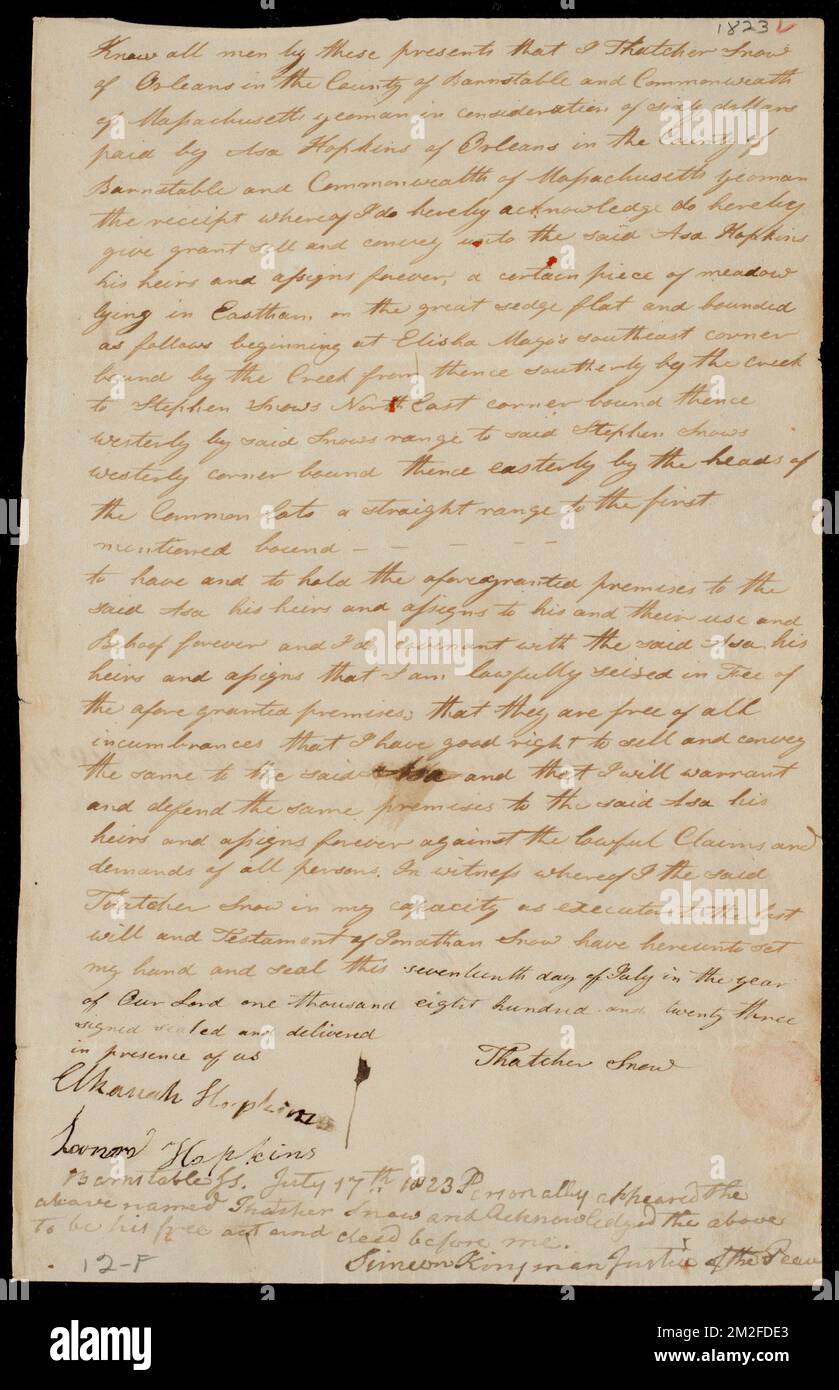 1823
Know all men by these presents that I Thatcher Snow
of Orleans in the County of Barnstable and Commonwealth
of Massachusetts yeoman in consideration of sixty dollars
paid by Asa Hopkins of Orleans in the County of
Barnstable and Commonwealth of Massachusetts yeoman
the receipt whereof I do hereby acknowledge do hereby
give grant sell and convey unto the said Asa Hopkins
his heirs and assigns forever, a certain piece of meadow
lying in Eastham on the great sedge flat and bounded
as follows beginning at Elisha Mayo's southeast corner
bound by the Creek from thence southerly by the Creek
to Stephen Snows North East corner bound thence
westerly by said Snows range to said Stephen Snows
westerly corner bound thence easterly by the heads of
the Common lots a straight range to the first
mentioned bound - - - - -
to have and to hold the aforegranted premises to the
said Asa his heirs and assigns to his and their use and
Behoof forever and I do covenant with the said Asa his
heirs and assigns that I am lawfully seized in Fee of
the afore granted premises; that they are free of all
incumbrances that I have good right to sell and convey
the same to the said Asa and that I will warrant
and defend the same premises to the said Asa his
heirs and assigns forever against the lawful Claims and
demands of all persons. In witness whereof I the said
Thatcher Snow in my capacity as executor of the last
will and Testament of Jonathan Snow have hereunto set
my hand and seal this seventeenth day of July in the year
of Our Lord one thousand eight hundred and twenty three
signed sealed and delivered
in presence of us
Thatcher Snow
Elkanah Hopkins
Hopkins
Barnstable Ss. July 17th 1823 Personally appeared the
above named Thatcher Snow and Acknowledged the above
to be his free act and deed before me.
Simeon Kingman Justice of the Peace
12-F
alamy
Image ID: 2M2FDE3
www.alamy.com